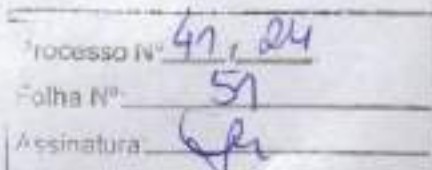 Processo Nº 41, 24
Folha Nº: 51
Assinatura: